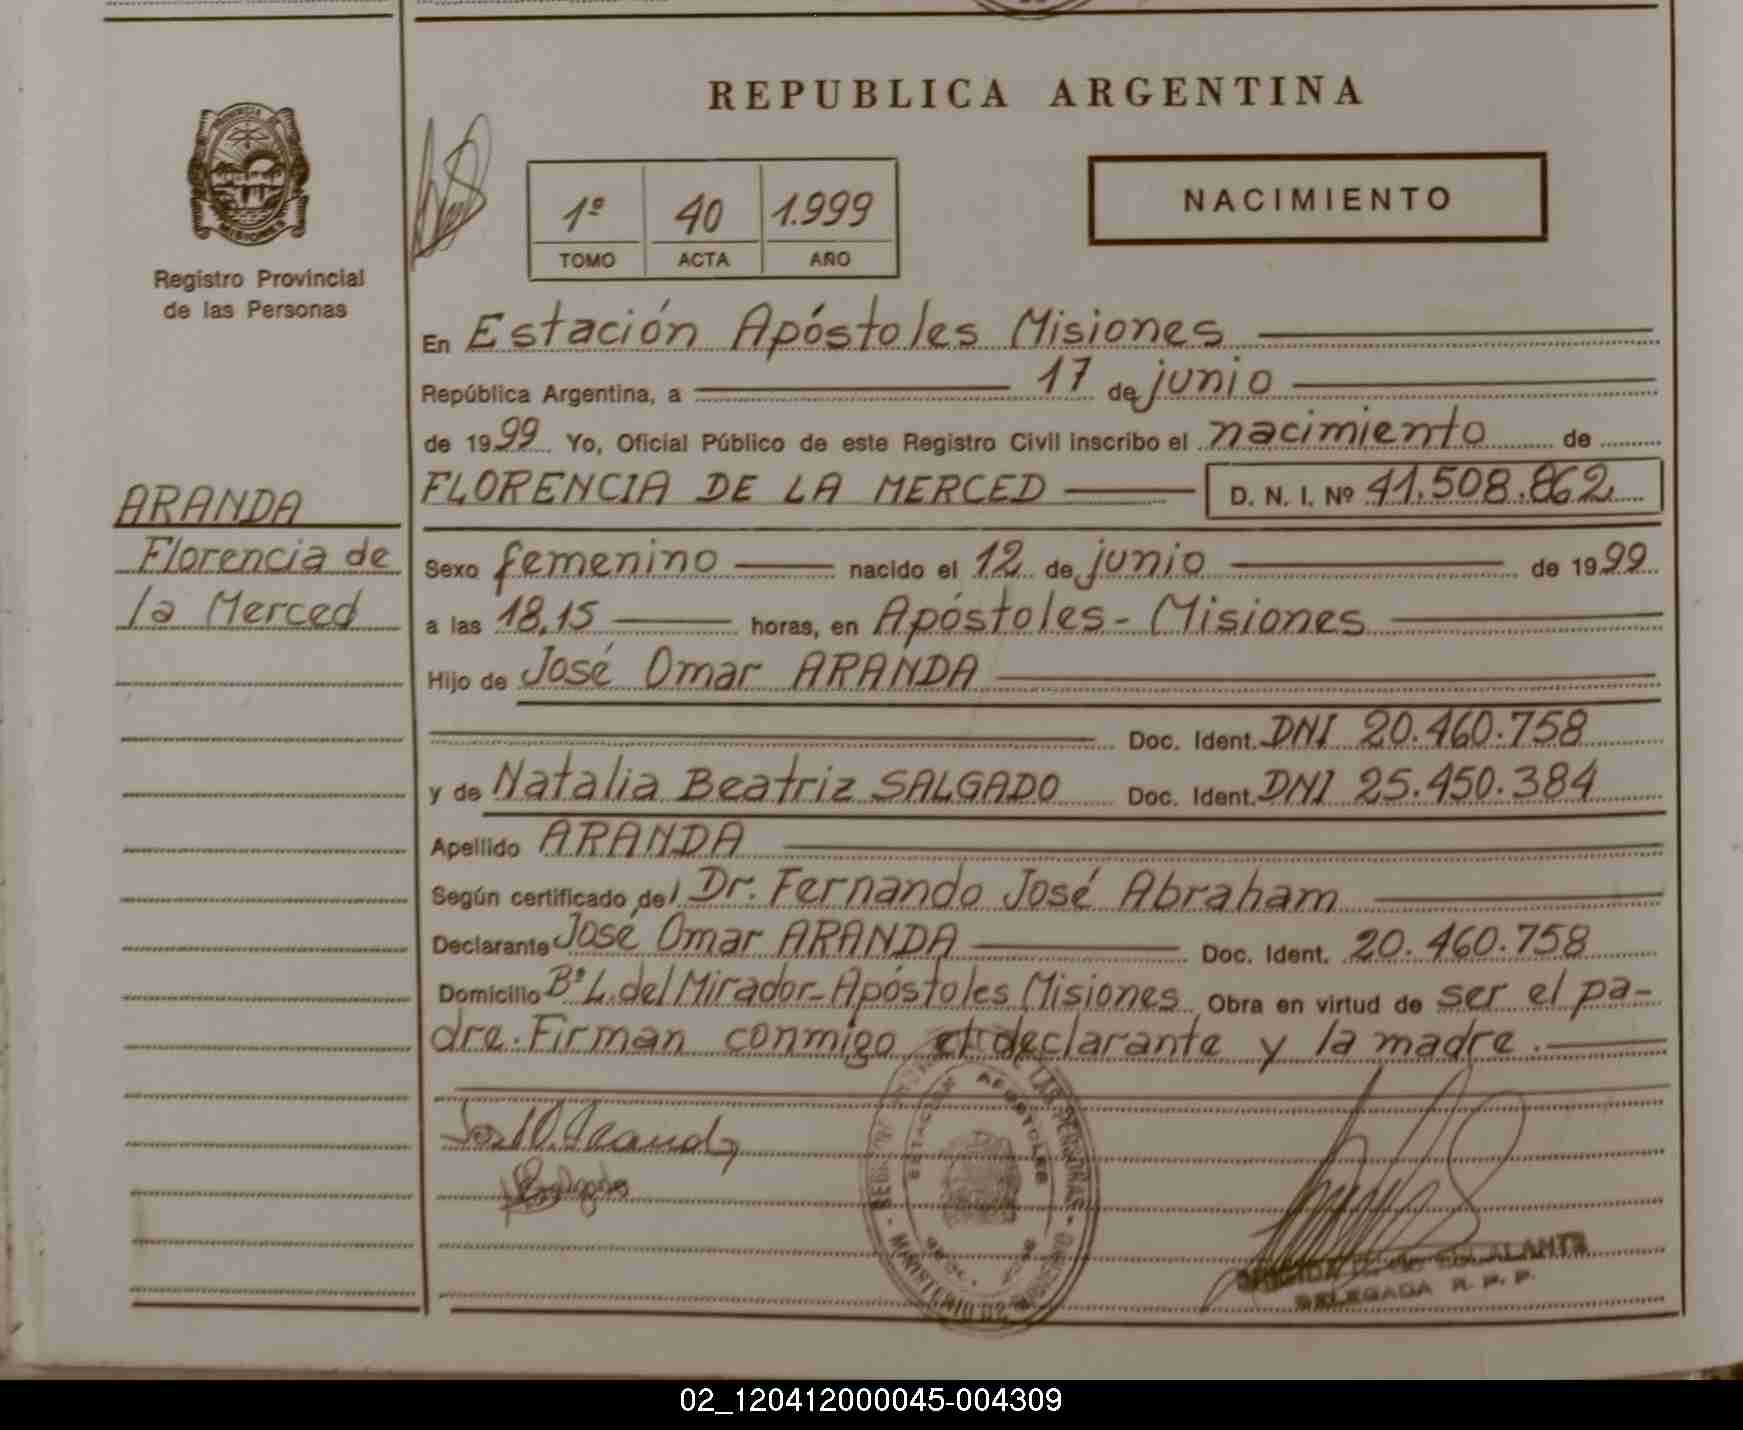 REPUBLICA ARGENTINA
PROVINCIA
MISIONES
Registro Provincial
de las Personas
1º 40 1.999
TOMO ACTA AÑO
NACIMIENTO
En Estación Apóstoles Misiones
República Argentina, a 17 de junio
de 1999 Yo, Oficial Público de este Registro Civil inscribo el nacimiento de
FLORENCIA DE LA MERCED D. N. I. Nº 41.508.862
ARANDA
Florencia de
la Merced
Sexo femenino nacido el 12 de junio de 1999
a las 18,15 horas, en Apóstoles - Misiones
Hijo de José Omar ARANDA
Doc. Ident. DNI 20.460.758
y de Natalia Beatriz SALGADO Doc. Ident. DNI 25.450.384
Apellido ARANDA
Según certificado del Dr. Fernando José Abraham
Declarante José Omar ARANDA Doc. Ident. 20.460.758
Domicilio Bº L. del Mirador - Apóstoles Misiones Obra en virtud de ser el pa-
dre. Firman conmigo el declarante y la madre.
José O. Aranda
ESTACION APOSTOLES
DE LAS PERSONAS
MINISTERIO DE GOBIERNO
DELEGADA R. P. P.
02_120412000045-004309